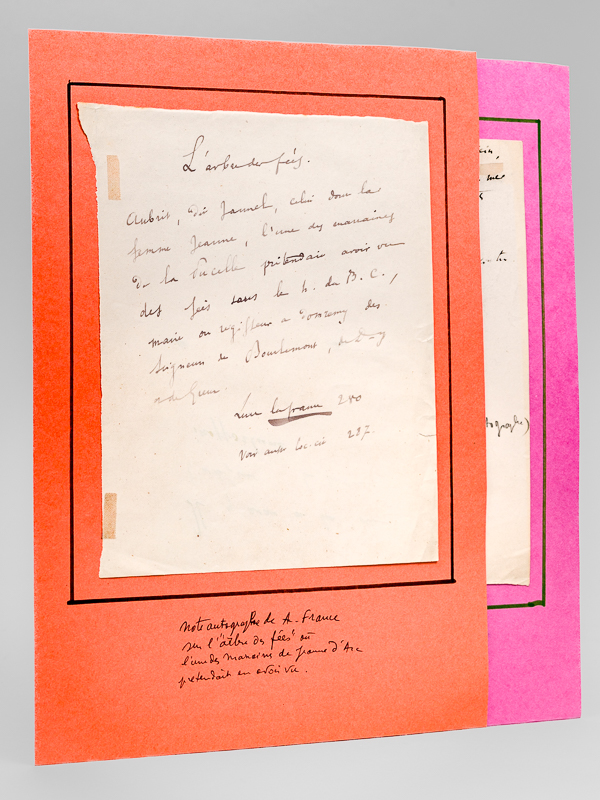 L'arbre des fées.
Aubrit, dit Jannet, celui dont la
femme Jeanne, l'une des marraines
de la Pucelle prétendait avoir vu
des fées sous le h. du B. C.,
maire ou régisseur à Domremy des
seigneurs de Bourlemont, de
Luce la france 280
Voir aussi loc. cit 287.
note autographe de A. France
sur l'"arbre des fées" où
l'une des marraines de Jeanne d'Arc
prétendait en avoir vu.
tographe)